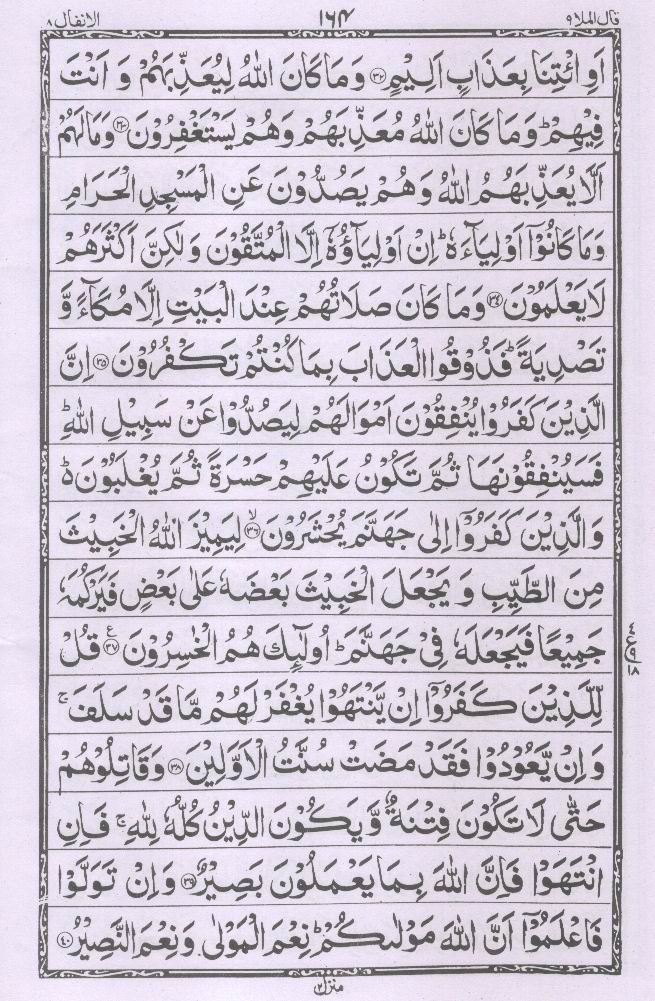 قال الملا ۹ ۱۶۴ الانفال ۸
اَوِ ائْتِنَا بِعَذَابٍ اَلِيْمٍ ﴿۳۲﴾ وَمَا كَانَ اللّٰهُ لِيُعَذِّبَهُمْ وَ اَنْتَ
فِيْهِمْ ؕ وَمَا كَانَ اللّٰهُ مُعَذِّبَهُمْ وَهُمْ يَسْتَغْفِرُوْنَ ﴿۳۳﴾ وَمَا لَهُمْ
اَلَّا يُعَذِّبَهُمُ اللّٰهُ وَهُمْ يَصُدُّوْنَ عَنِ الْمَسْجِدِ الْحَرَامِ
وَمَا كَانُوْۤا اَوْلِيَآءَهٗ ؕ اِنْ اَوْلِيَآؤُهٗۤ اِلَّا الْمُتَّقُوْنَ وَلٰكِنَّ اَكْثَرَهُمْ
لَا يَعْلَمُوْنَ ﴿۳۴﴾ وَمَا كَانَ صَلَاتُهُمْ عِنْدَ الْبَيْتِ اِلَّا مُكَآءً وَّ
تَصْدِيَةً ؕ فَذُوْقُوا الْعَذَابَ بِمَا كُنْتُمْ تَكْفُرُوْنَ ﴿۳۵﴾ اِنَّ
الَّذِيْنَ كَفَرُوْا يُنْفِقُوْنَ اَمْوَالَهُمْ لِيَصُدُّوْا عَنْ سَبِيْلِ اللّٰهِ ؕ
فَسَيُنْفِقُوْنَهَا ثُمَّ تَكُوْنُ عَلَيْهِمْ حَسْرَةً ثُمَّ يُغْلَبُوْنَ ؕ
وَالَّذِيْنَ كَفَرُوْۤا اِلٰى جَهَنَّمَ يُحْشَرُوْنَ ﴿۳۶﴾ۙ لِيَمِيْزَ اللّٰهُ الْخَبِيْثَ
مِنَ الطَّيِّبِ وَ يَجْعَلَ الْخَبِيْثَ بَعْضَهٗ عَلٰى بَعْضٍ فَيَرْكُمَهٗ
جَمِيْعًا فَيَجْعَلَهٗ فِيْ جَهَنَّمَ ؕ اُولٰٓئِكَ هُمُ الْخٰسِرُوْنَ ﴿۳۷﴾ع قُلْ
لِّلَّذِيْنَ كَفَرُوْۤا اِنْ يَّنْتَهُوْا يُغْفَرْ لَهُمْ مَّا قَدْ سَلَفَ ۚ
وَاِنْ يَّعُوْدُوْا فَقَدْ مَضَتْ سُنَّتُ الْاَوَّلِيْنَ ﴿۳۸﴾ وَقَاتِلُوْهُمْ
حَتّٰى لَا تَكُوْنَ فِتْنَةٌ وَّيَكُوْنَ الدِّيْنُ كُلُّهٗ لِلّٰهِ ۚ فَاِنِ
انْتَهَوْا فَاِنَّ اللّٰهَ بِمَا يَعْمَلُوْنَ بَصِيْرٌ ﴿۳۹﴾ وَاِنْ تَوَلَّوْا
فَاعْلَمُوْۤا اَنَّ اللّٰهَ مَوْلٰىكُمْ ؕ نِعْمَ الْمَوْلٰى وَنِعْمَ النَّصِيْرُ ﴿۴۰﴾
ع ۹ ۱۸
منزل ۲